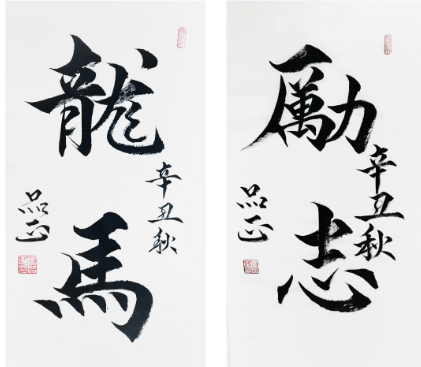 龍馬
辛丑秋
品正
勵志
辛丑秋
品正